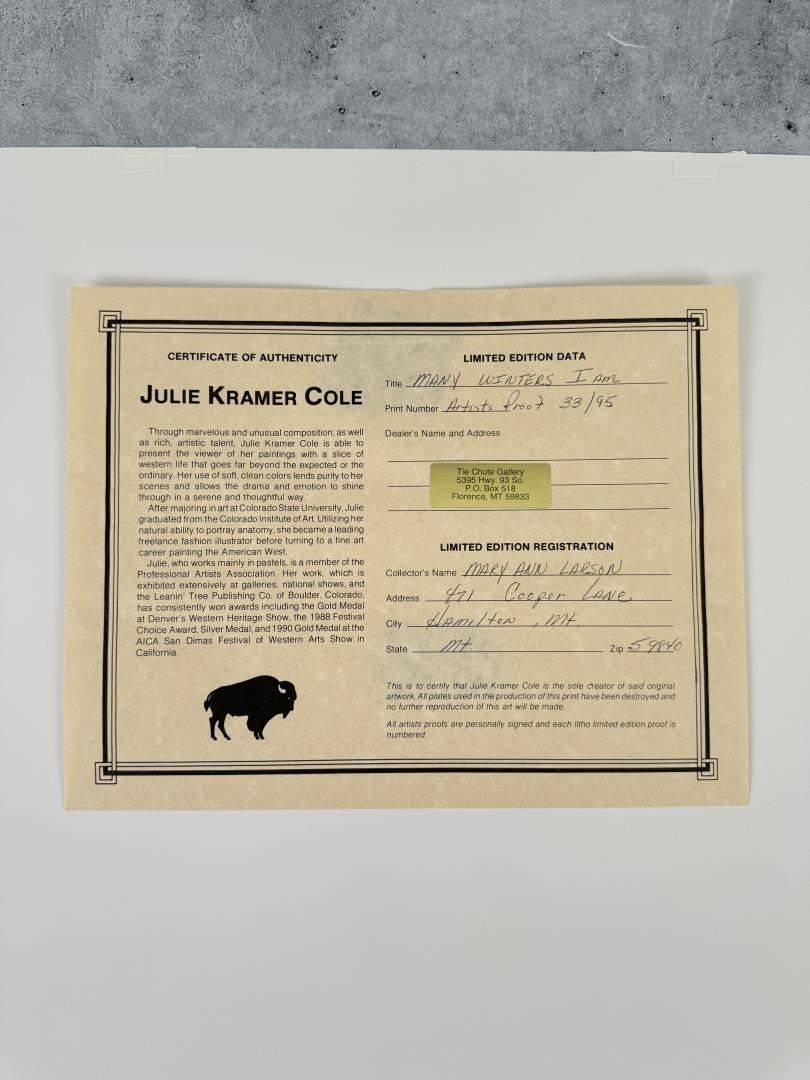 CERTIFICATE OF AUTHENTICITY
JULIE KRAMER COLE
Through marvelous and unusual composition, as well
as rich, artistic talent, Julie Kramer Cole is able to
present the viewer of her paintings with a slice of
western life that goes far beyond the expected or the
ordinary. Her use of soft, clean colors lends purity to her
scenes and allows the drama and emotion to shine
through in a serene and thoughtful way.
After majoring in art at Colorado State University, Julie
graduated from the Colorado Institute of Art. Utilizing her
natural ability to portray anatomy, she became a leading
freelance fashion illustrator before turning to a fine art
career painting the American West.
Julie, who works mainly in pastels, is a member of the
Professional Artists Association. Her work, which is
exhibited extensively at galleries, national shows, and
the Leanin' Tree Publishing Co. of Boulder, Colorado,
has consistently won awards including the Gold Medal
at Denver's Western Heritage Show, the 1988 Festival
Choice Award, Silver Medal, and 1990 Gold Medal at the
AICA San Dimas Festival of Western Arts Show in
California.
LIMITED EDITION DATA
Title MANY WINTERS I AM
Print Number Artists Proof 33/95
Dealer's Name and Address
Tie Chute Gallery
5395 Hwy. 93 So.
P.O. Box 518
Florence, MT 59833
LIMITED EDITION REGISTRATION
Collector's Name MARY ANN LARSON
Address 471 Cooper LANE
City Hamilton, Mt.
State Mt. Zip 59840
This is to certify that Julie Kramer Cole is the sole creator of said original
artwork. All plates used in the production of this print have been destroyed and
no further reproduction of this art will be made.
All artists proofs are personally signed and each litho limited edition proof is
numbered.